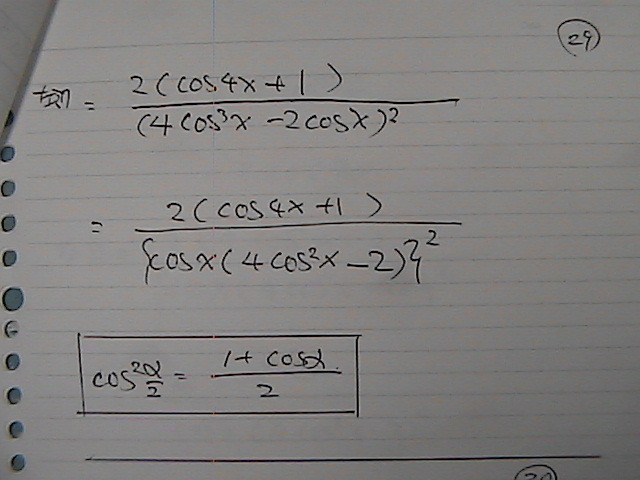 29
2(cos4x+1)
=
(4cos³x-2cosx)²
2(cos4x+1)
=
{cosx(4cos²x-2)}²
cos²α/2 = 1+cosα/2